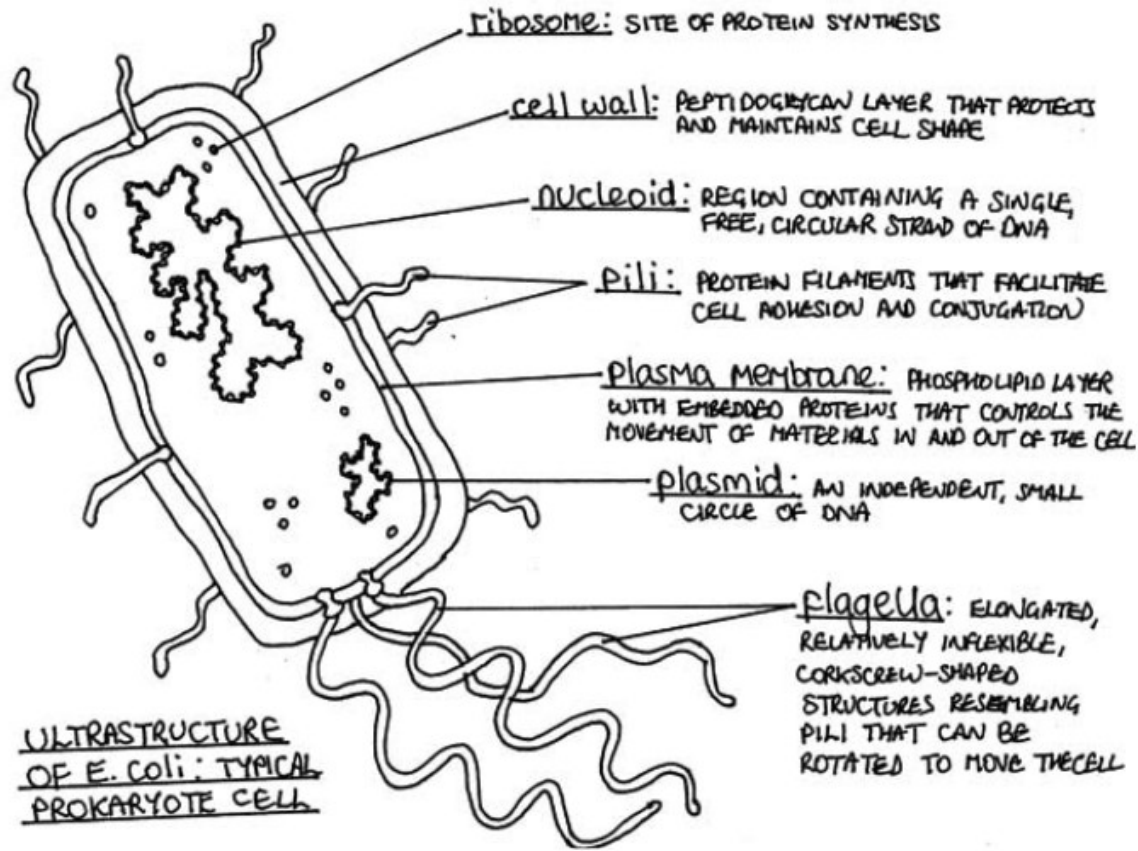 ribosome: SITE OF PROTEIN SYNTHESIS
cell wall: PEPTIDOGLYCAN LAYER THAT PROTECTS
AND MAINTAINS CELL SHAPE
nucleoid: REGION CONTAINING A SINGLE,
FREE, CIRCULAR STRAND OF DNA
Pili: PROTEIN FILAMENTS THAT FACILITATE
CELL ADHESION AND CONJUGATION
plasma membrane: PHOSPHOLIPID LAYER
WITH EMBEDDED PROTEINS THAT CONTROLS THE
MOVEMENT OF MATERIALS IN AND OUT OF THE CELL
plasmid: AN INDEPENDENT, SMALL
CIRCLE OF DNA
flagella: ELONGATED,
RELATIVELY INFLEXIBLE,
CORKSCREW-SHAPED
STRUCTURES RESEMBLING
PILI THAT CAN BE
ROTATED TO MOVE THE CELL
ULTRASTRUCTURE
OF E. Coli: TYPICAL
PROKARYOTE CELL